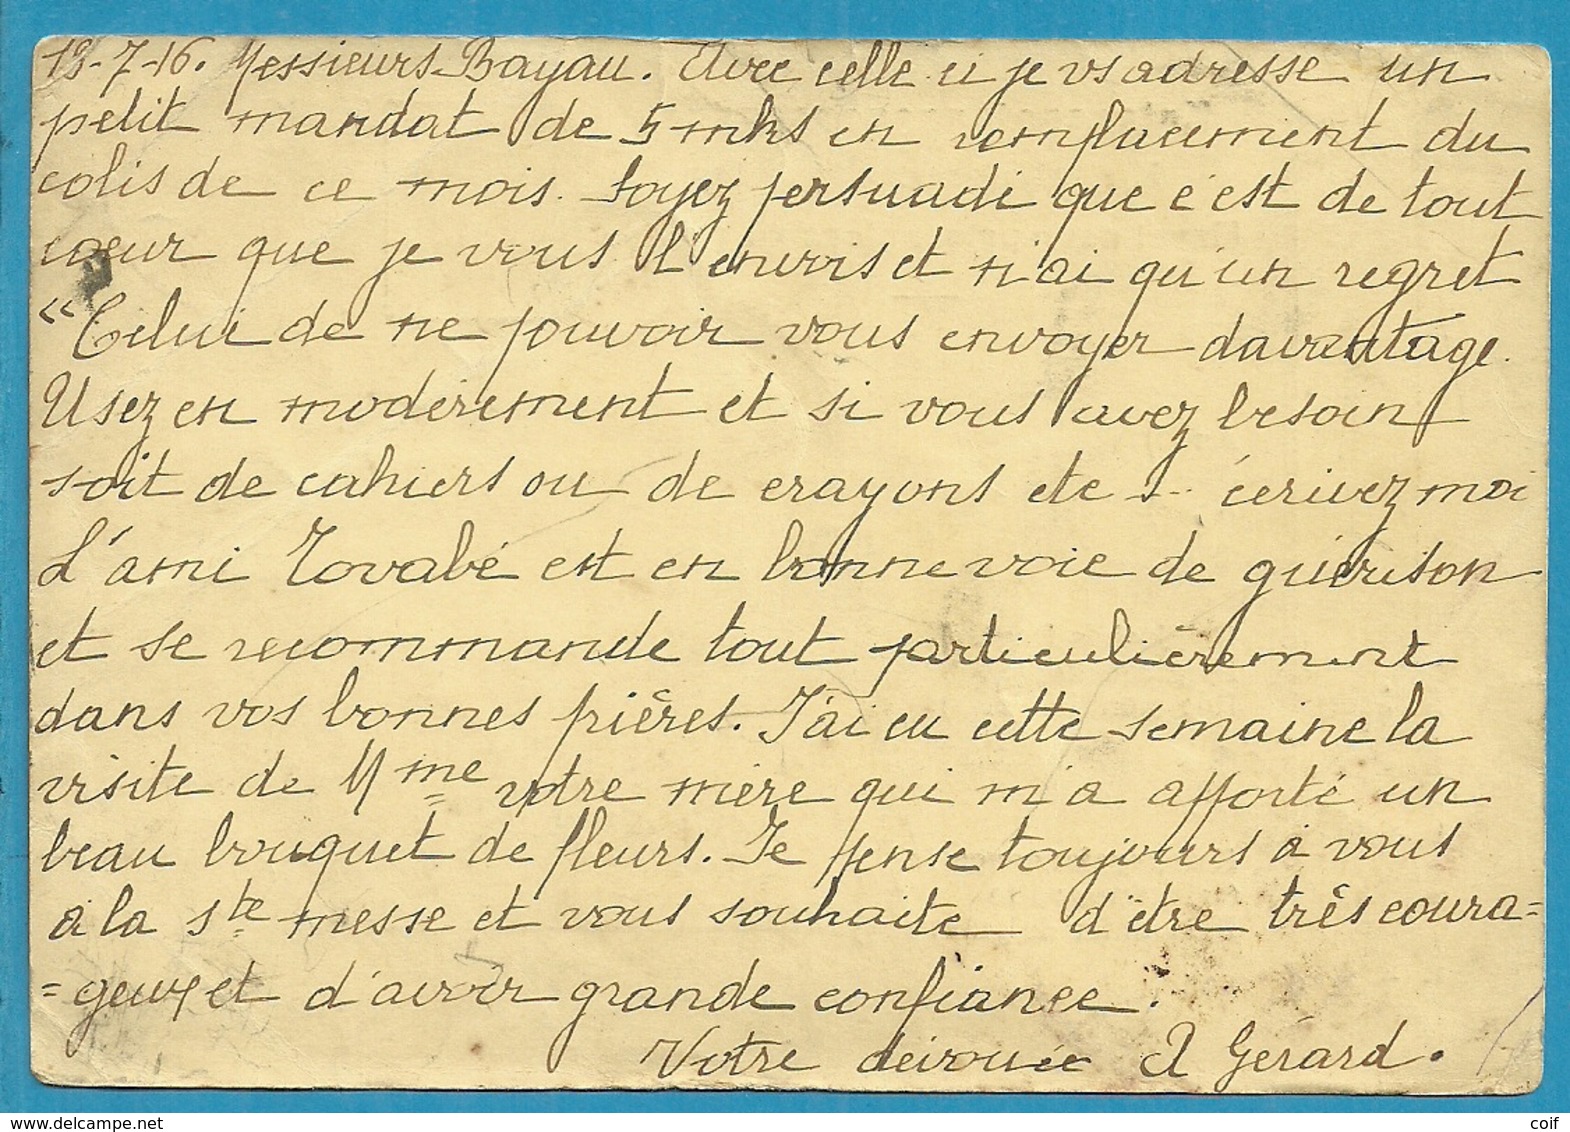 13-7-16. Messieurs Bayau. Avec celle ci je vs adresse un
petit mandat de 5 mks en remplacement du
colis de ce mois. Soyez persuadé que c'est de tout
cœur que je vous l'envois et n'ai qu'un regret
"Celui de ne pouvoir vous envoyer davantage.
Usez en modérément et si vous avez besoin
soit de cahiers ou de crayons etc s.. écrivez moi
L'ami Tovabé est en bonne voie de guérison
et se recommande tout particulièrement
dans vos bonnes prières. J'ai eu cette semaine la
visite de Mme votre mère qui m'a apporté un
beau bouquet de fleurs. Je pense toujours à vous
à la Ste messe et vous souhaite d'être très coura=
=geux et d'avoir grande confiance.
Votre dévouée A Gérard.
www.delcampe.net
coif